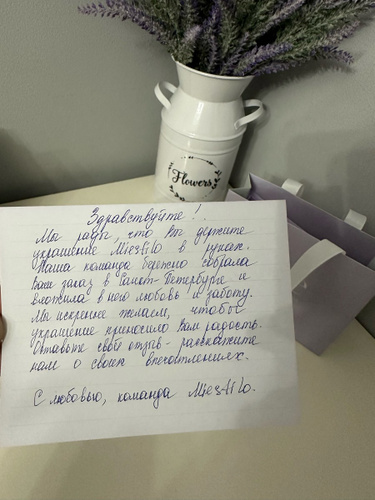 Flowers
Здравствуйте!
Мы рады, что Вы держите
украшение Miestilo в руках.
Наша команда бережно собрала
Ваш заказ в Санкт-Петербурге и
вложила в него любовь и заботу.
Мы искренне желаем, чтобы
украшение приносило Вам радость.
Оставьте свой отзыв - расскажите
нам о своих впечатлениях.
С любовью, команда Miestilo.